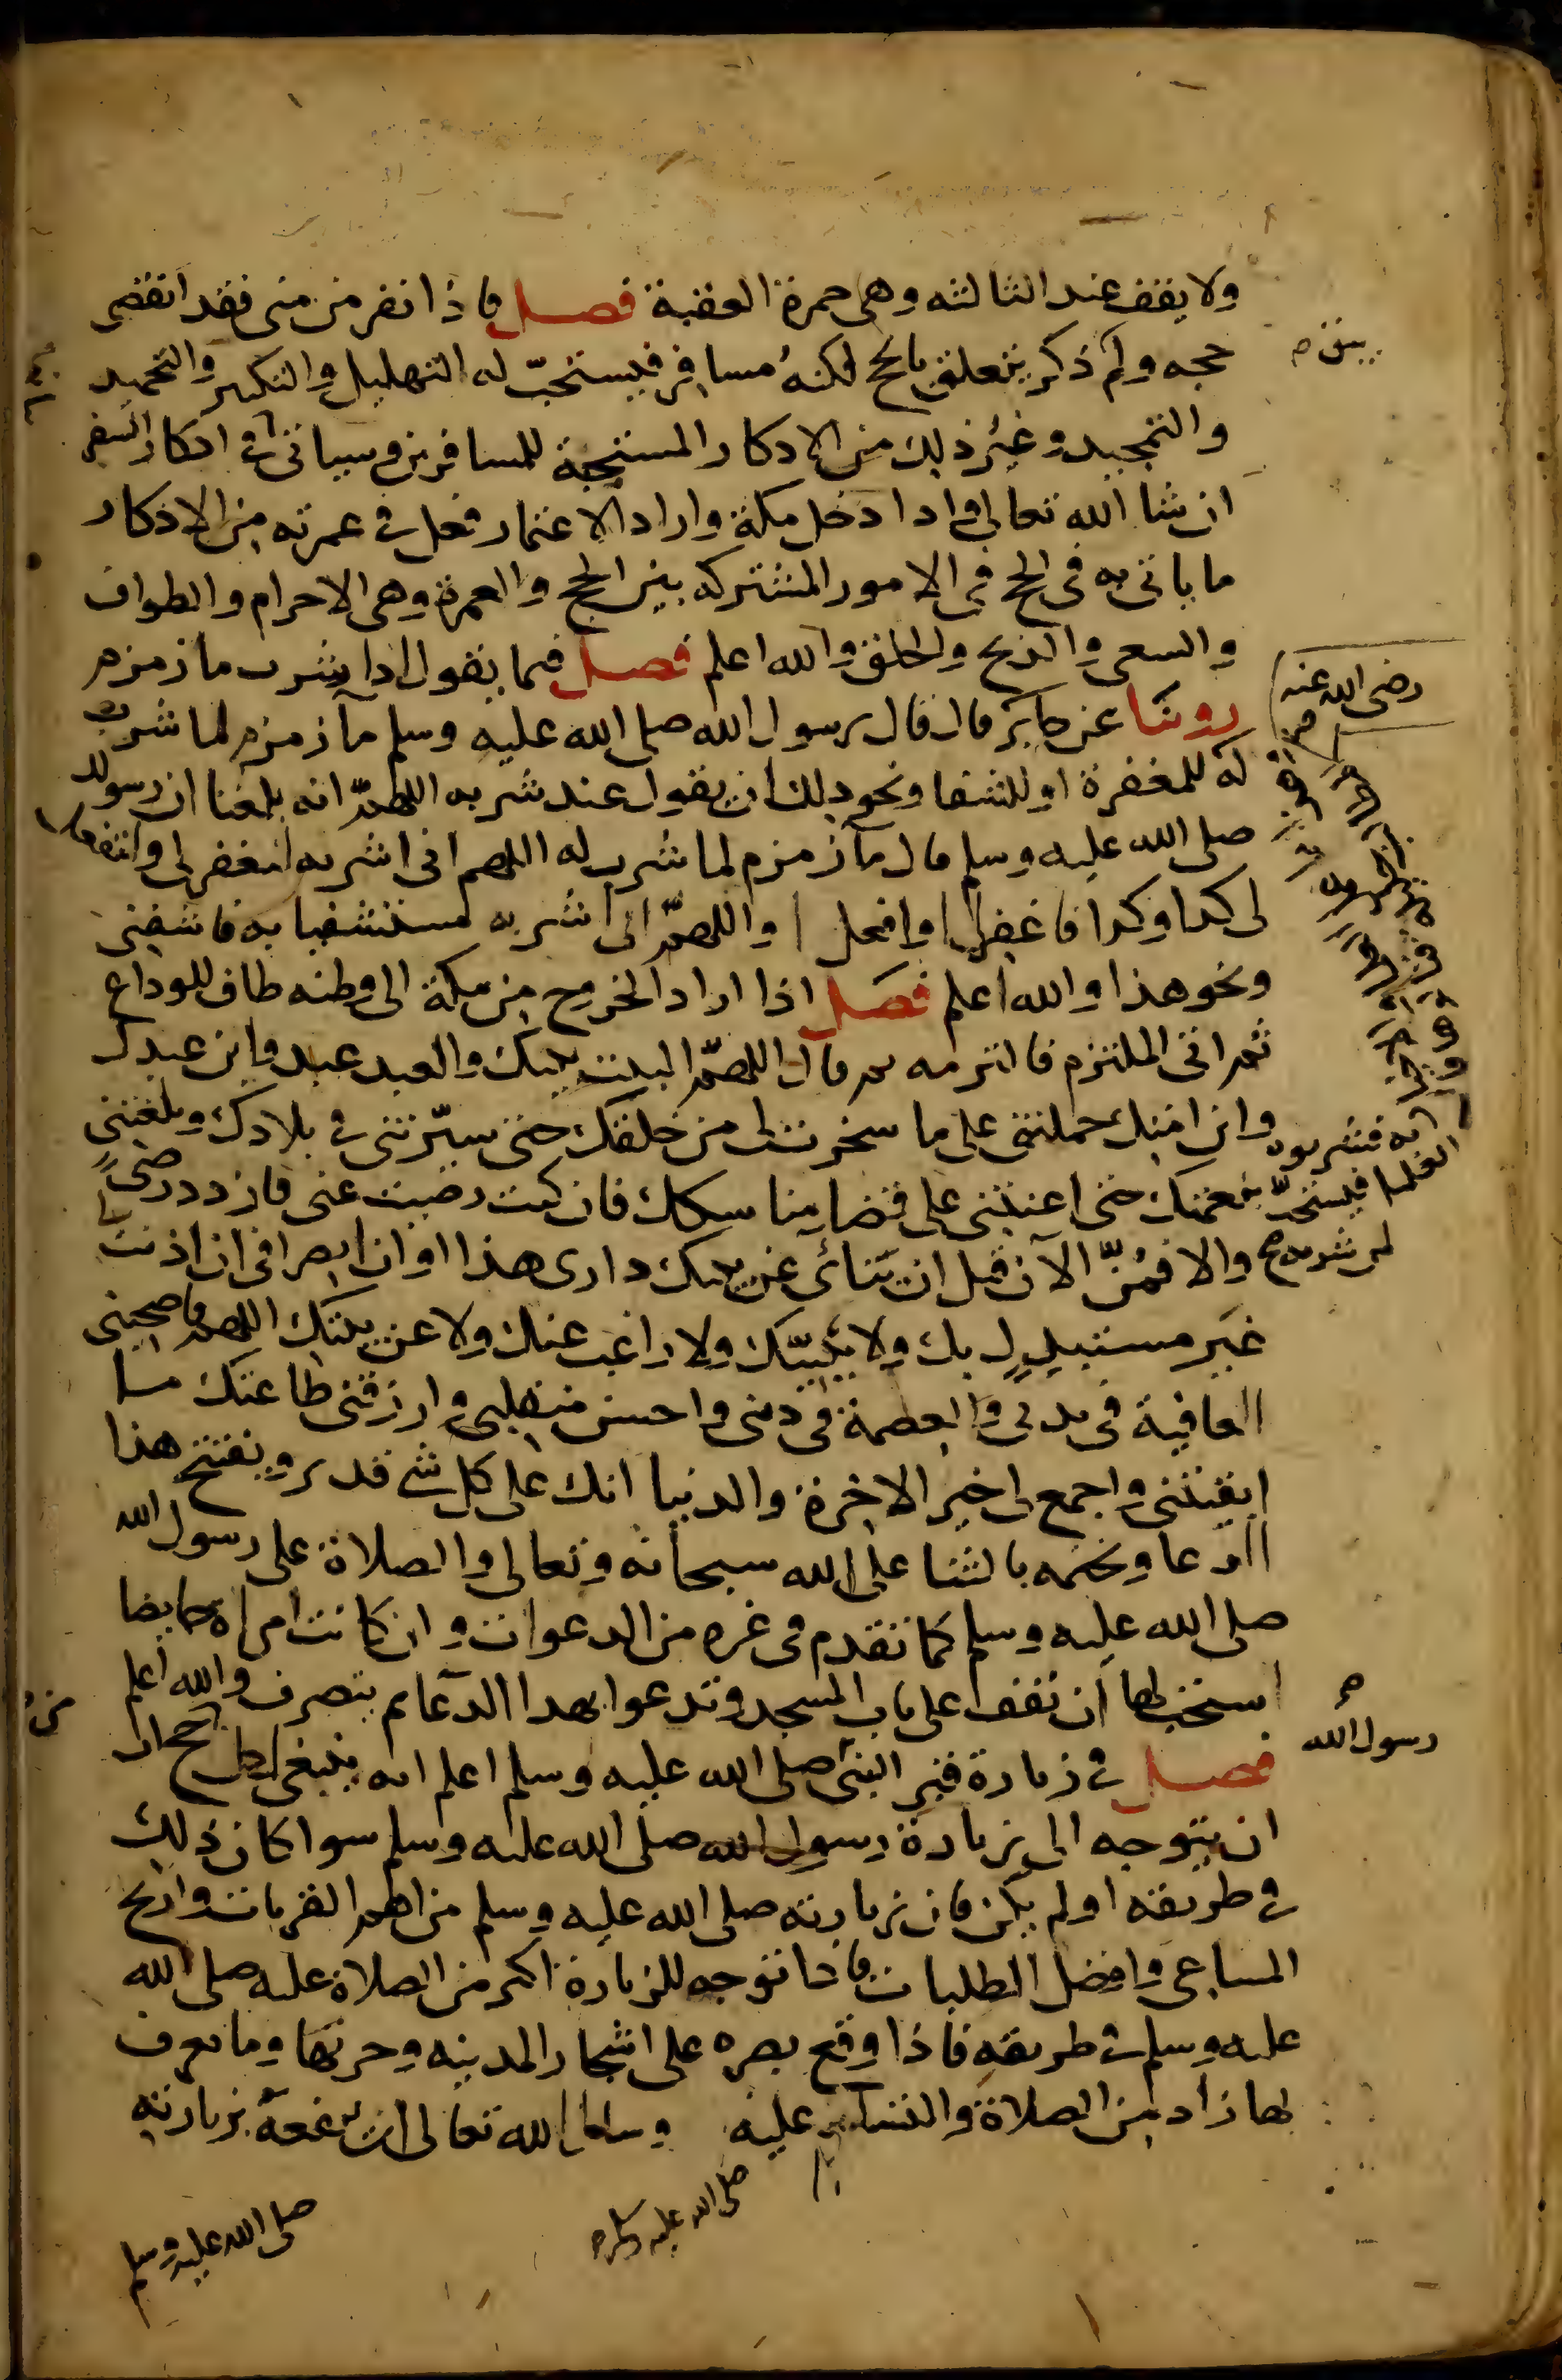 ولا يقف عند الثالثه وهى جمرة العقبة فصل فاذا نفر من منى فقد انقضى
حجه ولم ذكر يتعلق بالحج لكنه مسافر فيستحبّ له التهليل والتكبير والتحميد
والتمجيد وغير ذلك من الاذكار المستحبة للمسافرين وسياتى فى اذكار السفر
ان شا الله تعالى واذا دخل مكة واراد الاعتمار فعل فى عمرته من الاذكار
ما ياتى به فى الحج فى الامور المشتركه بين الحج والعمرة وهى الاحرام والطواف
والسعى والذبح والحلق والله اعلم فصل فيما يقول اذا شرب ما زمزم
روينا عن جابر قال قال رسول الله صلى الله عليه وسلم مآ زمزم لما شرب
رضى الله عنه
له للمغفرة او للشفا ونحو ذلك ان يقول عند شربه اللهمّ انه بلغنا ان رسولك
صلى الله عليه وسلم قال مآ زمزم لما شرب له اللهم انى اشربه لتغفر لى ولتفعل
لى كذا وكذا فاغفر لى او افعل او اللهمّ انى اشربه مستشفيا به فاشفنى
ونحو هذا والله اعلم فصل اذا اراد الخروج من مكة الى وطنه طاف للوداع
ثم اتى الملتزم فالتزمه ثم قال اللهمّ البيت بيتك والعبد عبدك وابن عبدك
وابن امتك حملتنى على ما سخرت لى من خلقك حتى سيّرتنى فى بلادك وبلغتنى
به فشربوه
العلما فيستحبّ
بنعمتك حتى اعنتنى على قضا مناسكك فان كنت رضيت عنى فازدد رضىً
لمن شربه
والا فمُنّ الآن قبل ان تنائى عن بيتك دارى هذا اوان انصرافى ان اذنت لى
غير مستبدلٍ بك ولا ببيتك ولا راغب عنك ولا عن بيتك اللهم فاصحبنى
العافية فى بدنى والعصمة فى دينى واحسن منقلبى وارزقنى طاعتك ما
ابقيتنى واجمع لى خير الاخرة والدنيا انك على كل شى قدير ويفتتح هذا
الدعا ويختمه بالثنا على الله سبحانه وتعالى والصلاة على رسول الله
صلى الله عليه وسلم كما تقدم فى غيره من الدعوات وان كانت امراة حايضا
استحب لها ان تقف على باب المسجد وتدعوا بهذا الدعا ثم تنصرف والله اعلم
فصل فى زيارة قبر النبى صلى الله عليه وسلم اعلم انه ينبغى لكل حج
رسول الله
ان يتوجه الى زيارة رسول الله صلى الله عليه وسلم سوا كان ذلك
فى طريقه او لم يكن فان زيارته صلى الله عليه وسلم من اهم القربات واربح
المساعى وافضل الطلبات فاذا توجه للزيارة اكثر من الصلاة عليه صلى الله
عليه وسلم فى طريقه فاذا وقع بصره على اشجار المدينه وحرمها وما يعرف
بها زاد من الصلاة والتسليم عليه وسال الله تعالى ان ينفعه بزيارته
صلى الله عليه وسلم
صلى الله عليه وسلم